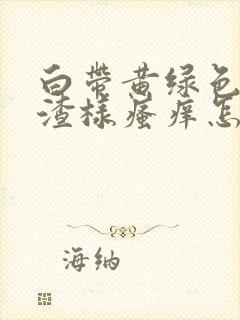 白带黄绿色
渣样瘙痒怎
海纳